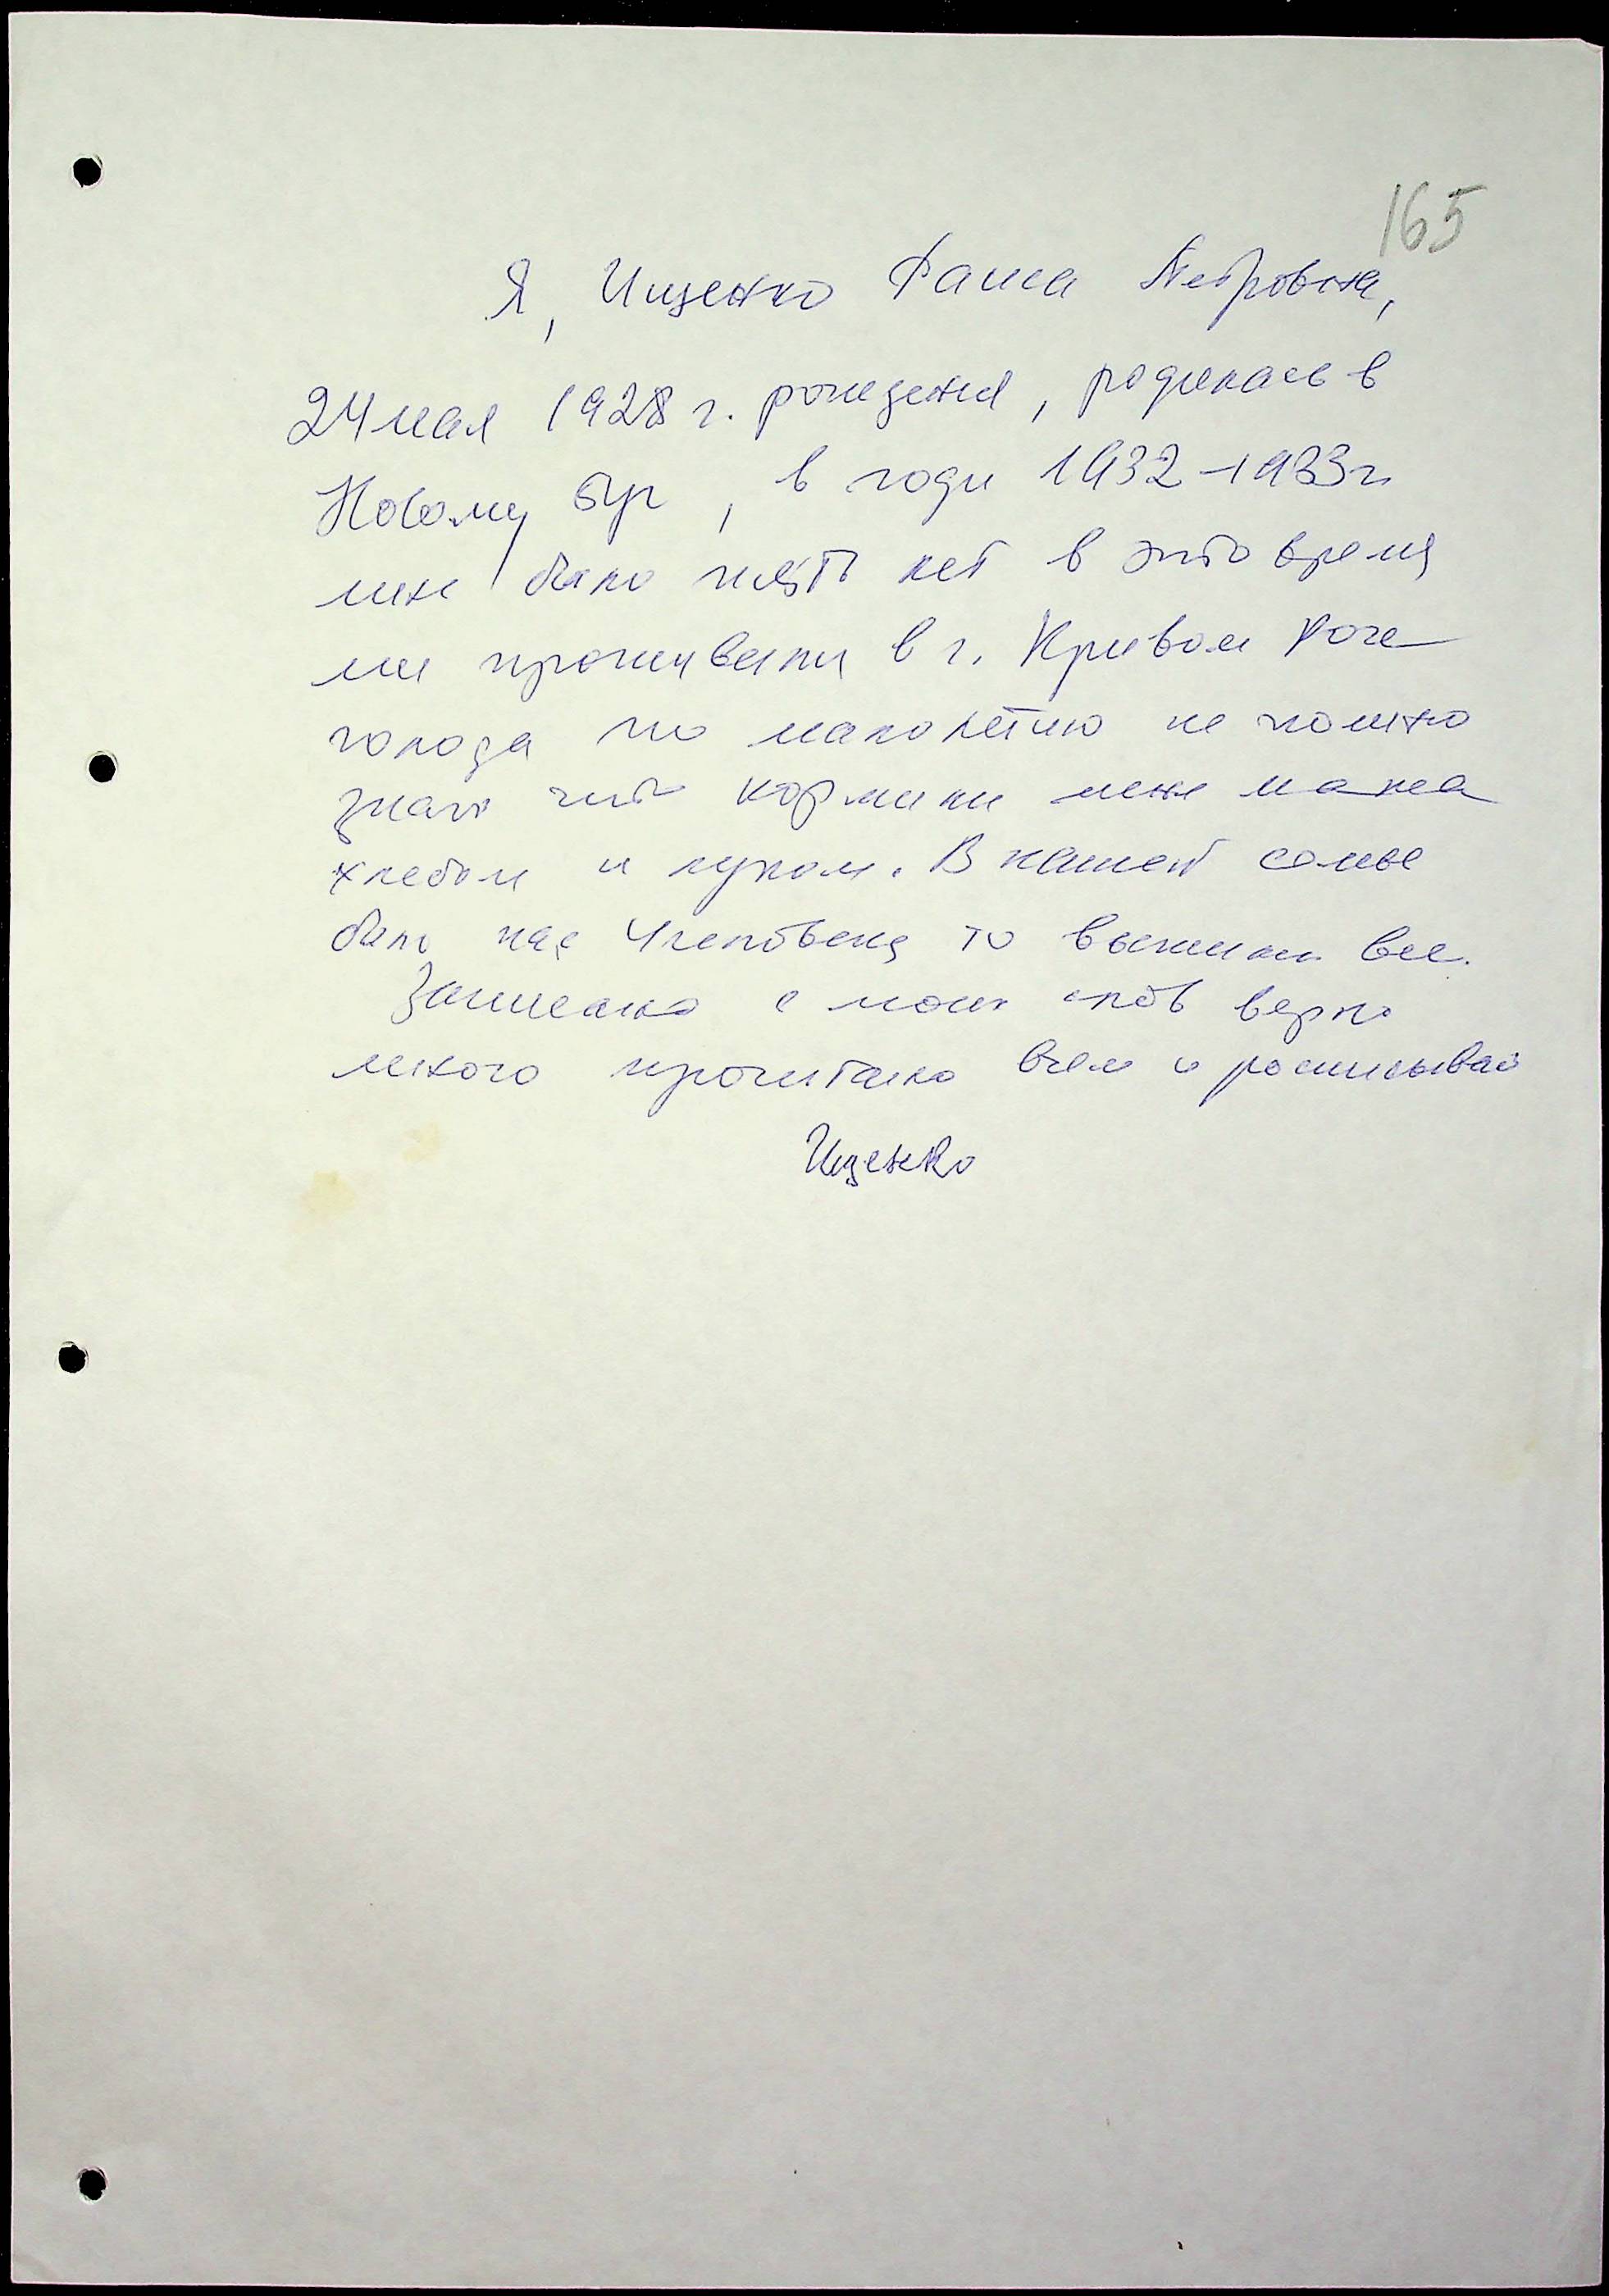 165
Я, Ищенко Раиса Петровна,
24 мая 1928 г. рождения, родилась в
Новому Буг, в годи 1932-1933г.
мне было пять лет в это время
ми проживали в г. Кривом Роге
голода по малолетию не помню
знаю что кормили меня мама
хлебом и луком. В нашей семье
было нас 4 человека то выжили все.
Записано с моих слов верно
мною прочитано
Ищенко